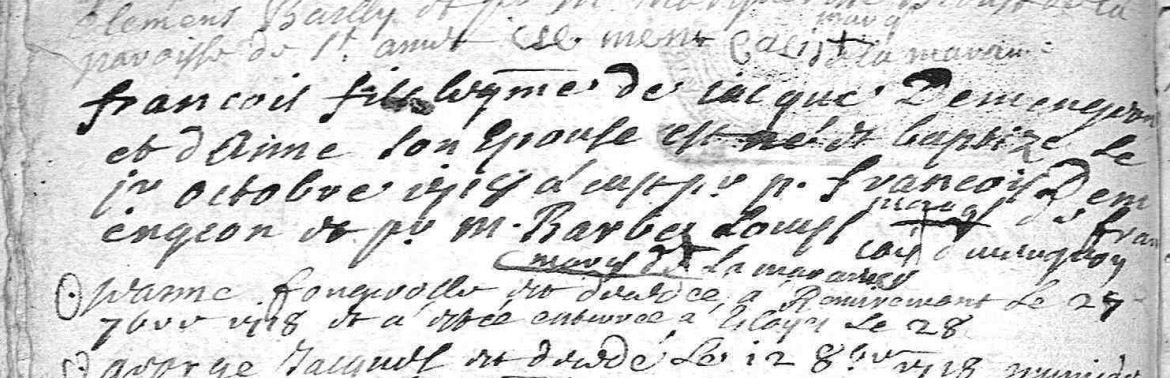 Clement Bailly et pr m.
paroisse de st. amet marq de la maraine
francois fils legme de iacque Demengeon
et d'Anne son Epouse est né et baptizé le
jr octobre 1718 a eust pr p. francois Dem
engeon et pr m. Barbe Louys marq de fran
cois d
marq de la maraine
Jeanne fongerolle est decedée a Remiremont le 27
7bre 1718 et a etée enterrée a Eloyes le 28
George Jacques est decedé le 12 8bre 1718 muni de